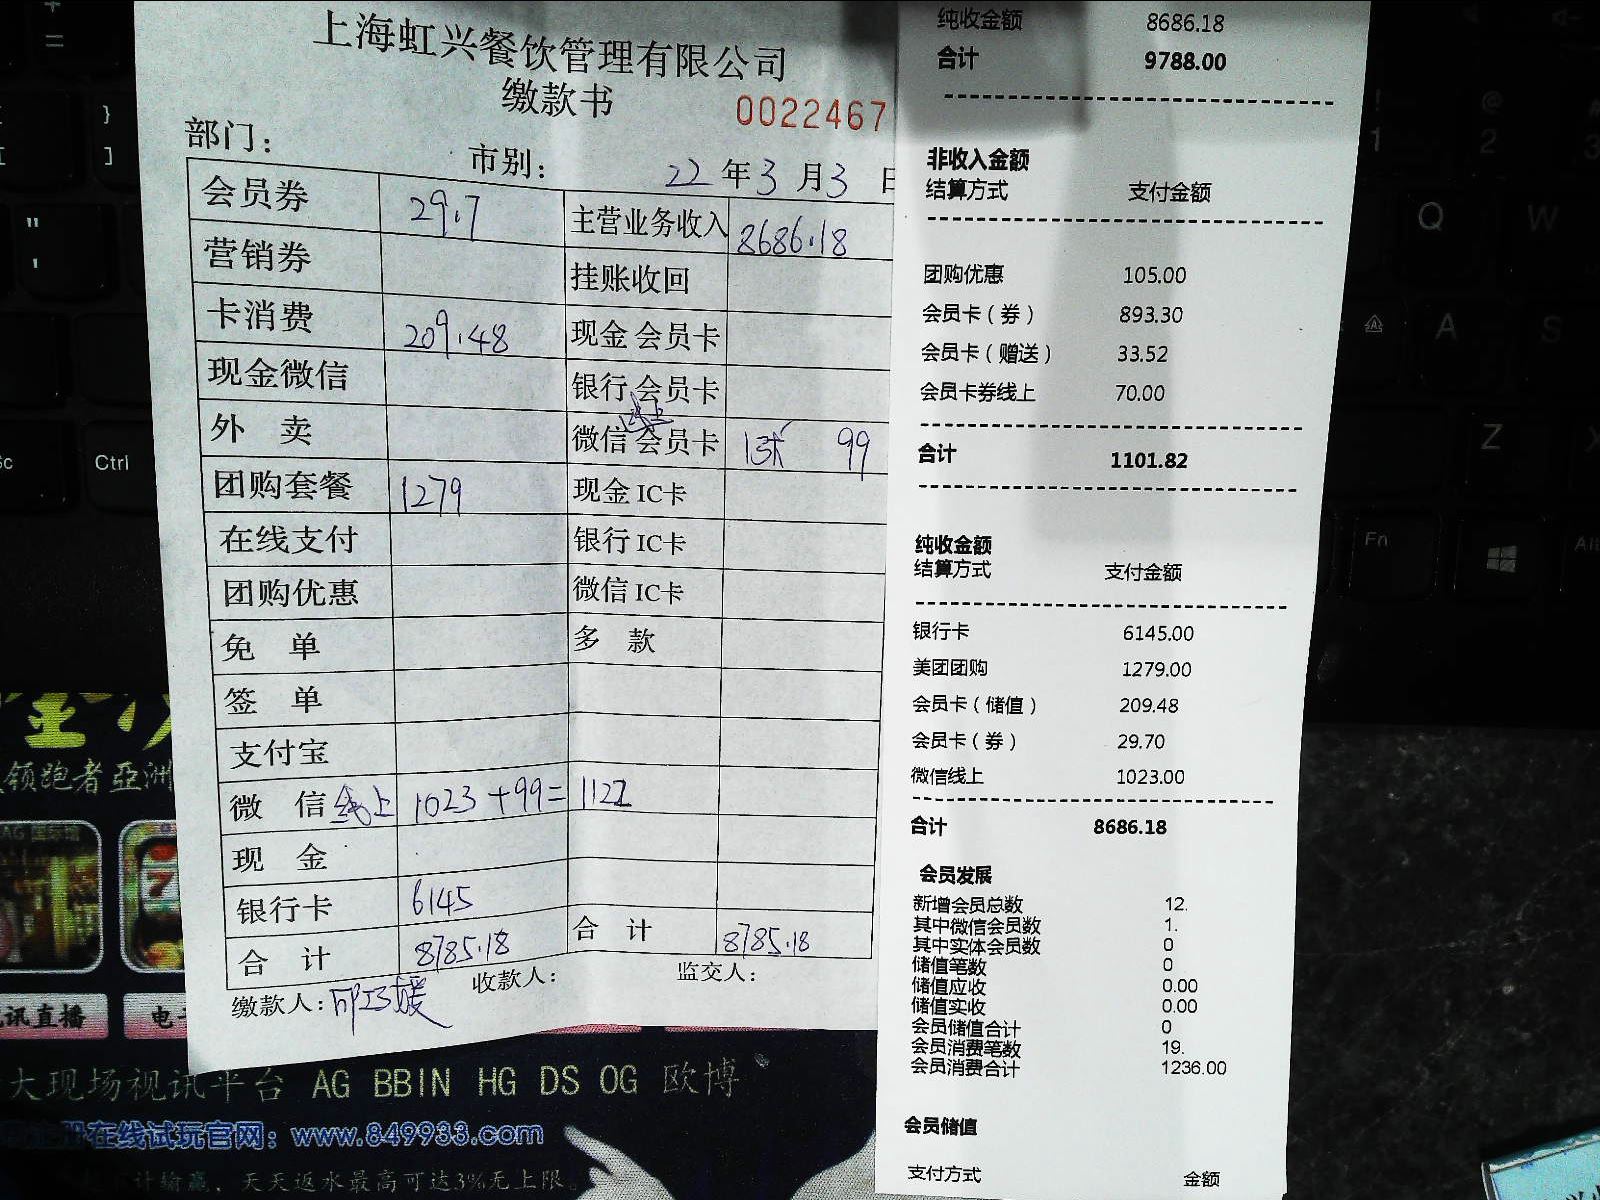 上海虹兴餐饮管理有限公司
缴款书
0022467
部门：
市别：
22 年 3 月 3 日
会员券 29.7 主营业务收入 8686.18
营销券 挂账收回
卡消费 209.48 现金 会员卡
现金微信 银行 会员卡
线上
外 卖 微信 会员卡 1张 99
团购套餐 1279 现金 IC卡
在线支付 银行 IC卡
团购优惠 微信 IC卡
免 单 多 款
签 单
支付宝
微 信 线上 1023 +99= 1122
现 金
银行卡 6145
合 计 8785.18 合 计 8785.18
缴款人： 收款人： 监交人：
纯收金额 8686.18
合计 9788.00
非收入金额
结算方式 支付金额
团购优惠 105.00
会员卡（券） 893.30
会员卡（赠送） 33.52
会员卡券线上 70.00
合计 1101.82
纯收金额
结算方式 支付金额
银行卡 6145.00
美团团购 1279.00
会员卡（储值） 209.48
会员卡（券） 29.70
微信线上 1023.00
合计 8686.18
会员发展
新增会员总数 12.
其中微信会员数 1.
其中实体会员数 0
储值笔数 0
储值应收 0.00
储值实收 0.00
会员储值合计 0
会员消费笔数 19.
会员消费合计 1236.00
会员储值
支付方式 金额
领跑者亞洲
讯直播
大现场视讯平台 AG BBIN HG DS OG 欧博
在线试玩官网：www.849933.com
计输赢，天天返水最高可达3%无上限。
Ctrl
Q
W
A
S
Z
Fn
Alt
1
2
3